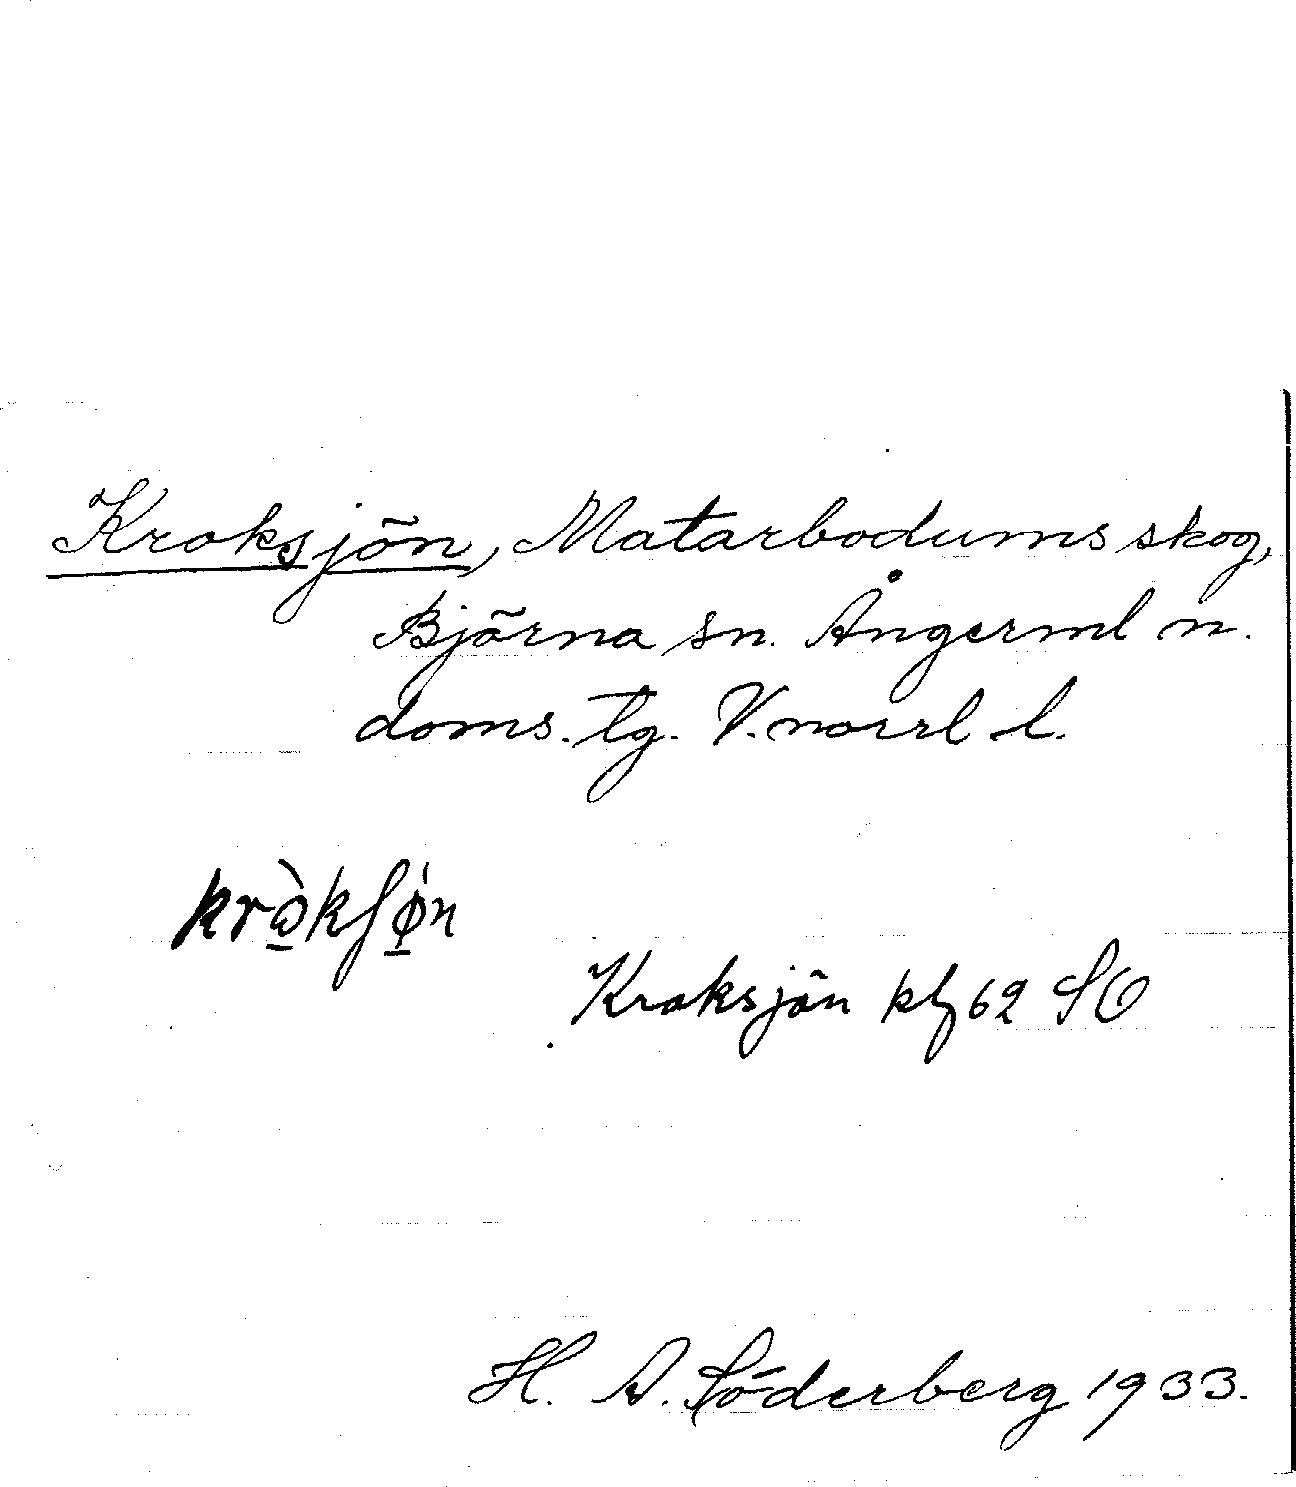 Kroksjön, Matarbodums skog,
Björna sn. Ångerml n.
doms. tg. V.norrl l.
krὼkʃø̀n
Kroksjön kbl 62 SO
H. A. Söderberg 1933.